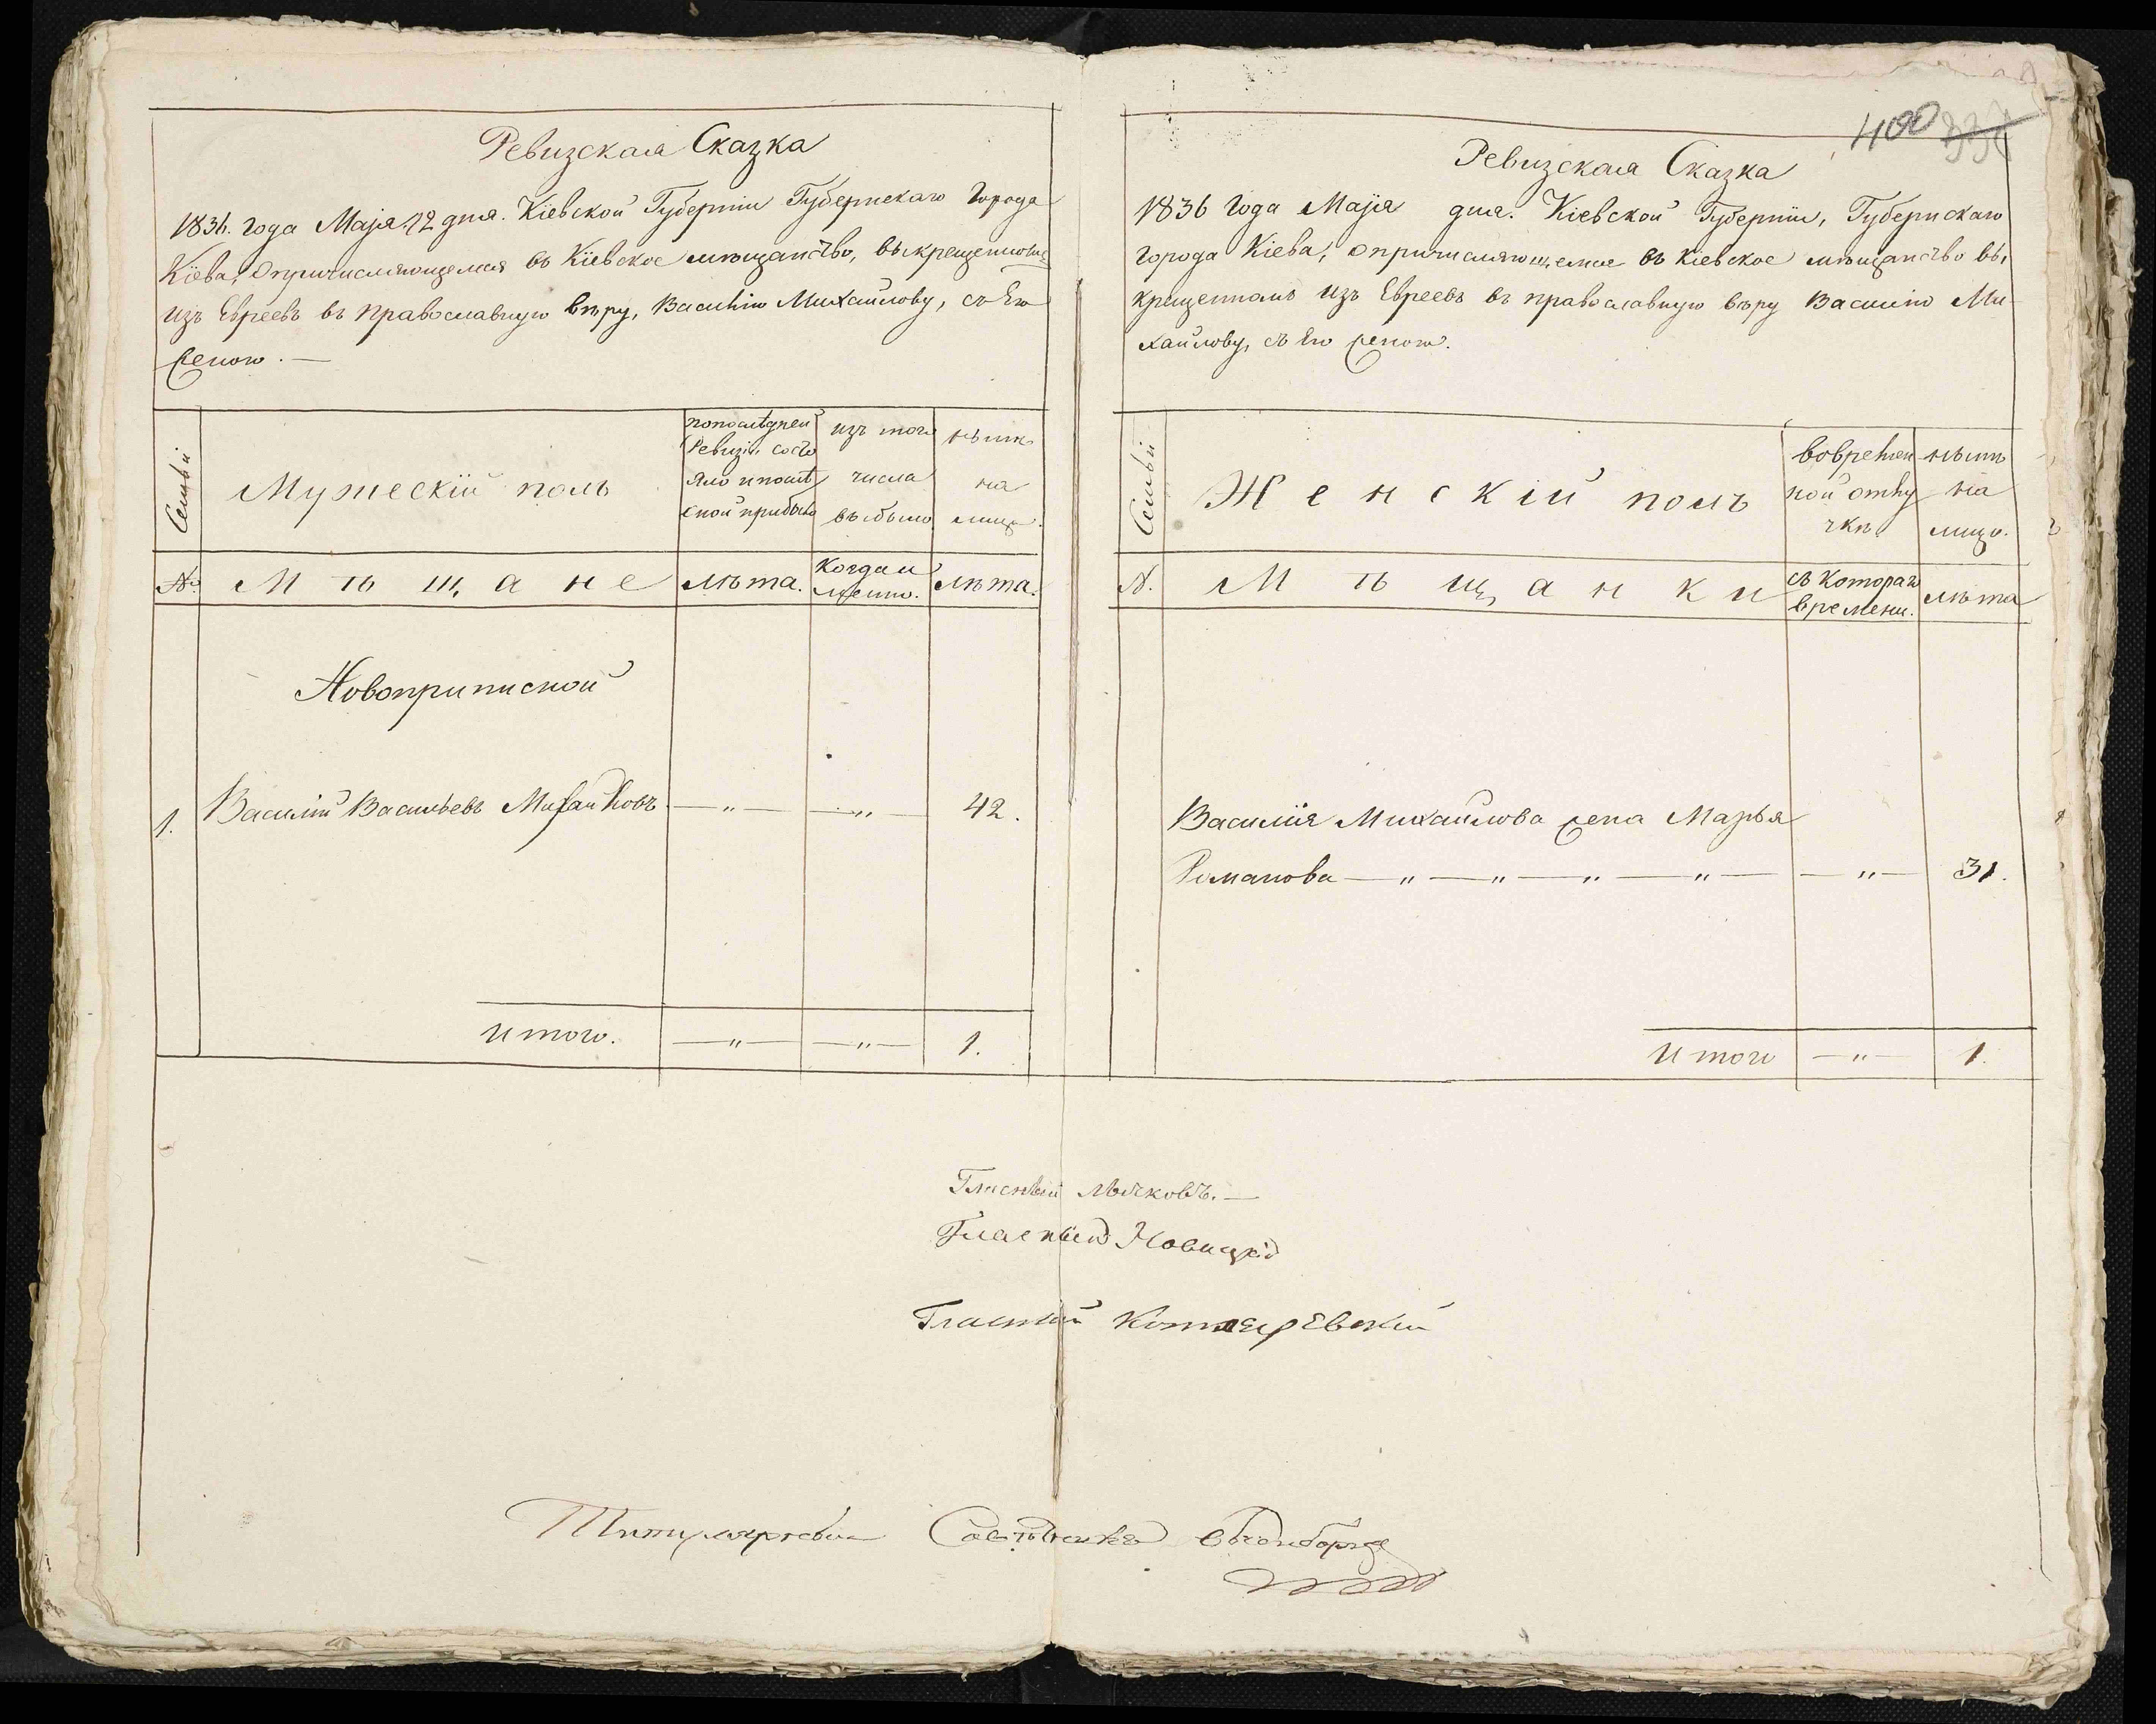 Ревизская Сказка
1836. года Маія 12 дня. Кіевской Губерніи Губернскаго Города
Кіева, Опричисляющемся въ Кіевское мѣщанство, выкрещенномъ
изъ Евреевъ въ православную вѣру, Василію Михайлову, съ Его
женою. —
Семьи
Мужескій полъ
попослѣдней Ревизіи состояло и послѣ оной прибыло
изъ того числа выбыло
нынѣ на лицо.
№. Мѣщане лѣта. Когда именно. лѣта.
Новоприписной
1. Василій Васильевъ Михайловъ — „ — — „ — 42.
Итого. — „ — — „ — 1.
400 
Ревизская Сказка
1836 Года Маія дня. Кіевской Губерніи, Губернскаго
города Кіева, Опричисляющемся въ Кіевское мѣщанство вы
крещенномъ изъ Евреевъ въ православную вѣру Василію Ми
хайлову, съ Его женою.
Семьи
Женскій полъ
вовремен
ной отлу
чкѣ
нынѣ
на
лицо.
№. Мѣщанки съ котораго времени. лѣта
Василія Михайлова жена Марья
Романова — „ — „ — „ — „ — — „ — 31.
Итого — „ — 1.
Гласный
Гласный Новицкій
Гласный Котляревскій
Титулярный Совѣтникъ